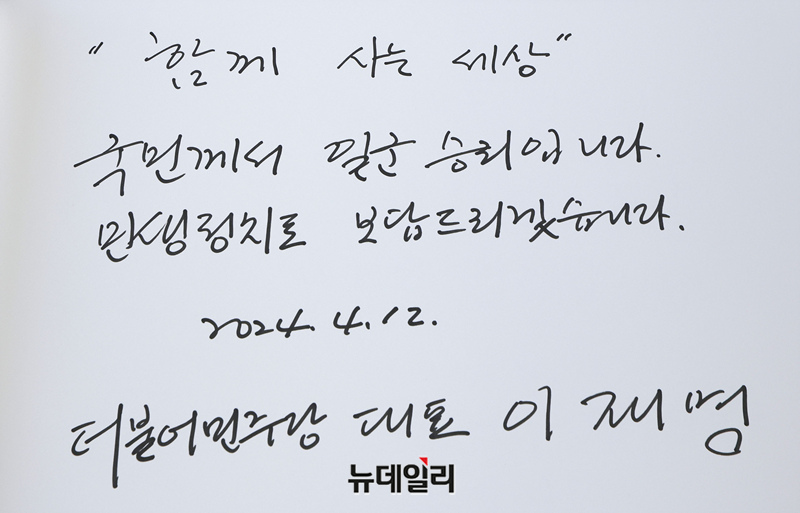 "함께 사는 세상"
국민께서 일군 승리입니다.
민생정치로 보답드리겠습니다.
2024. 4. 12.
더불어민주당 대표 이재명
뉴데일리